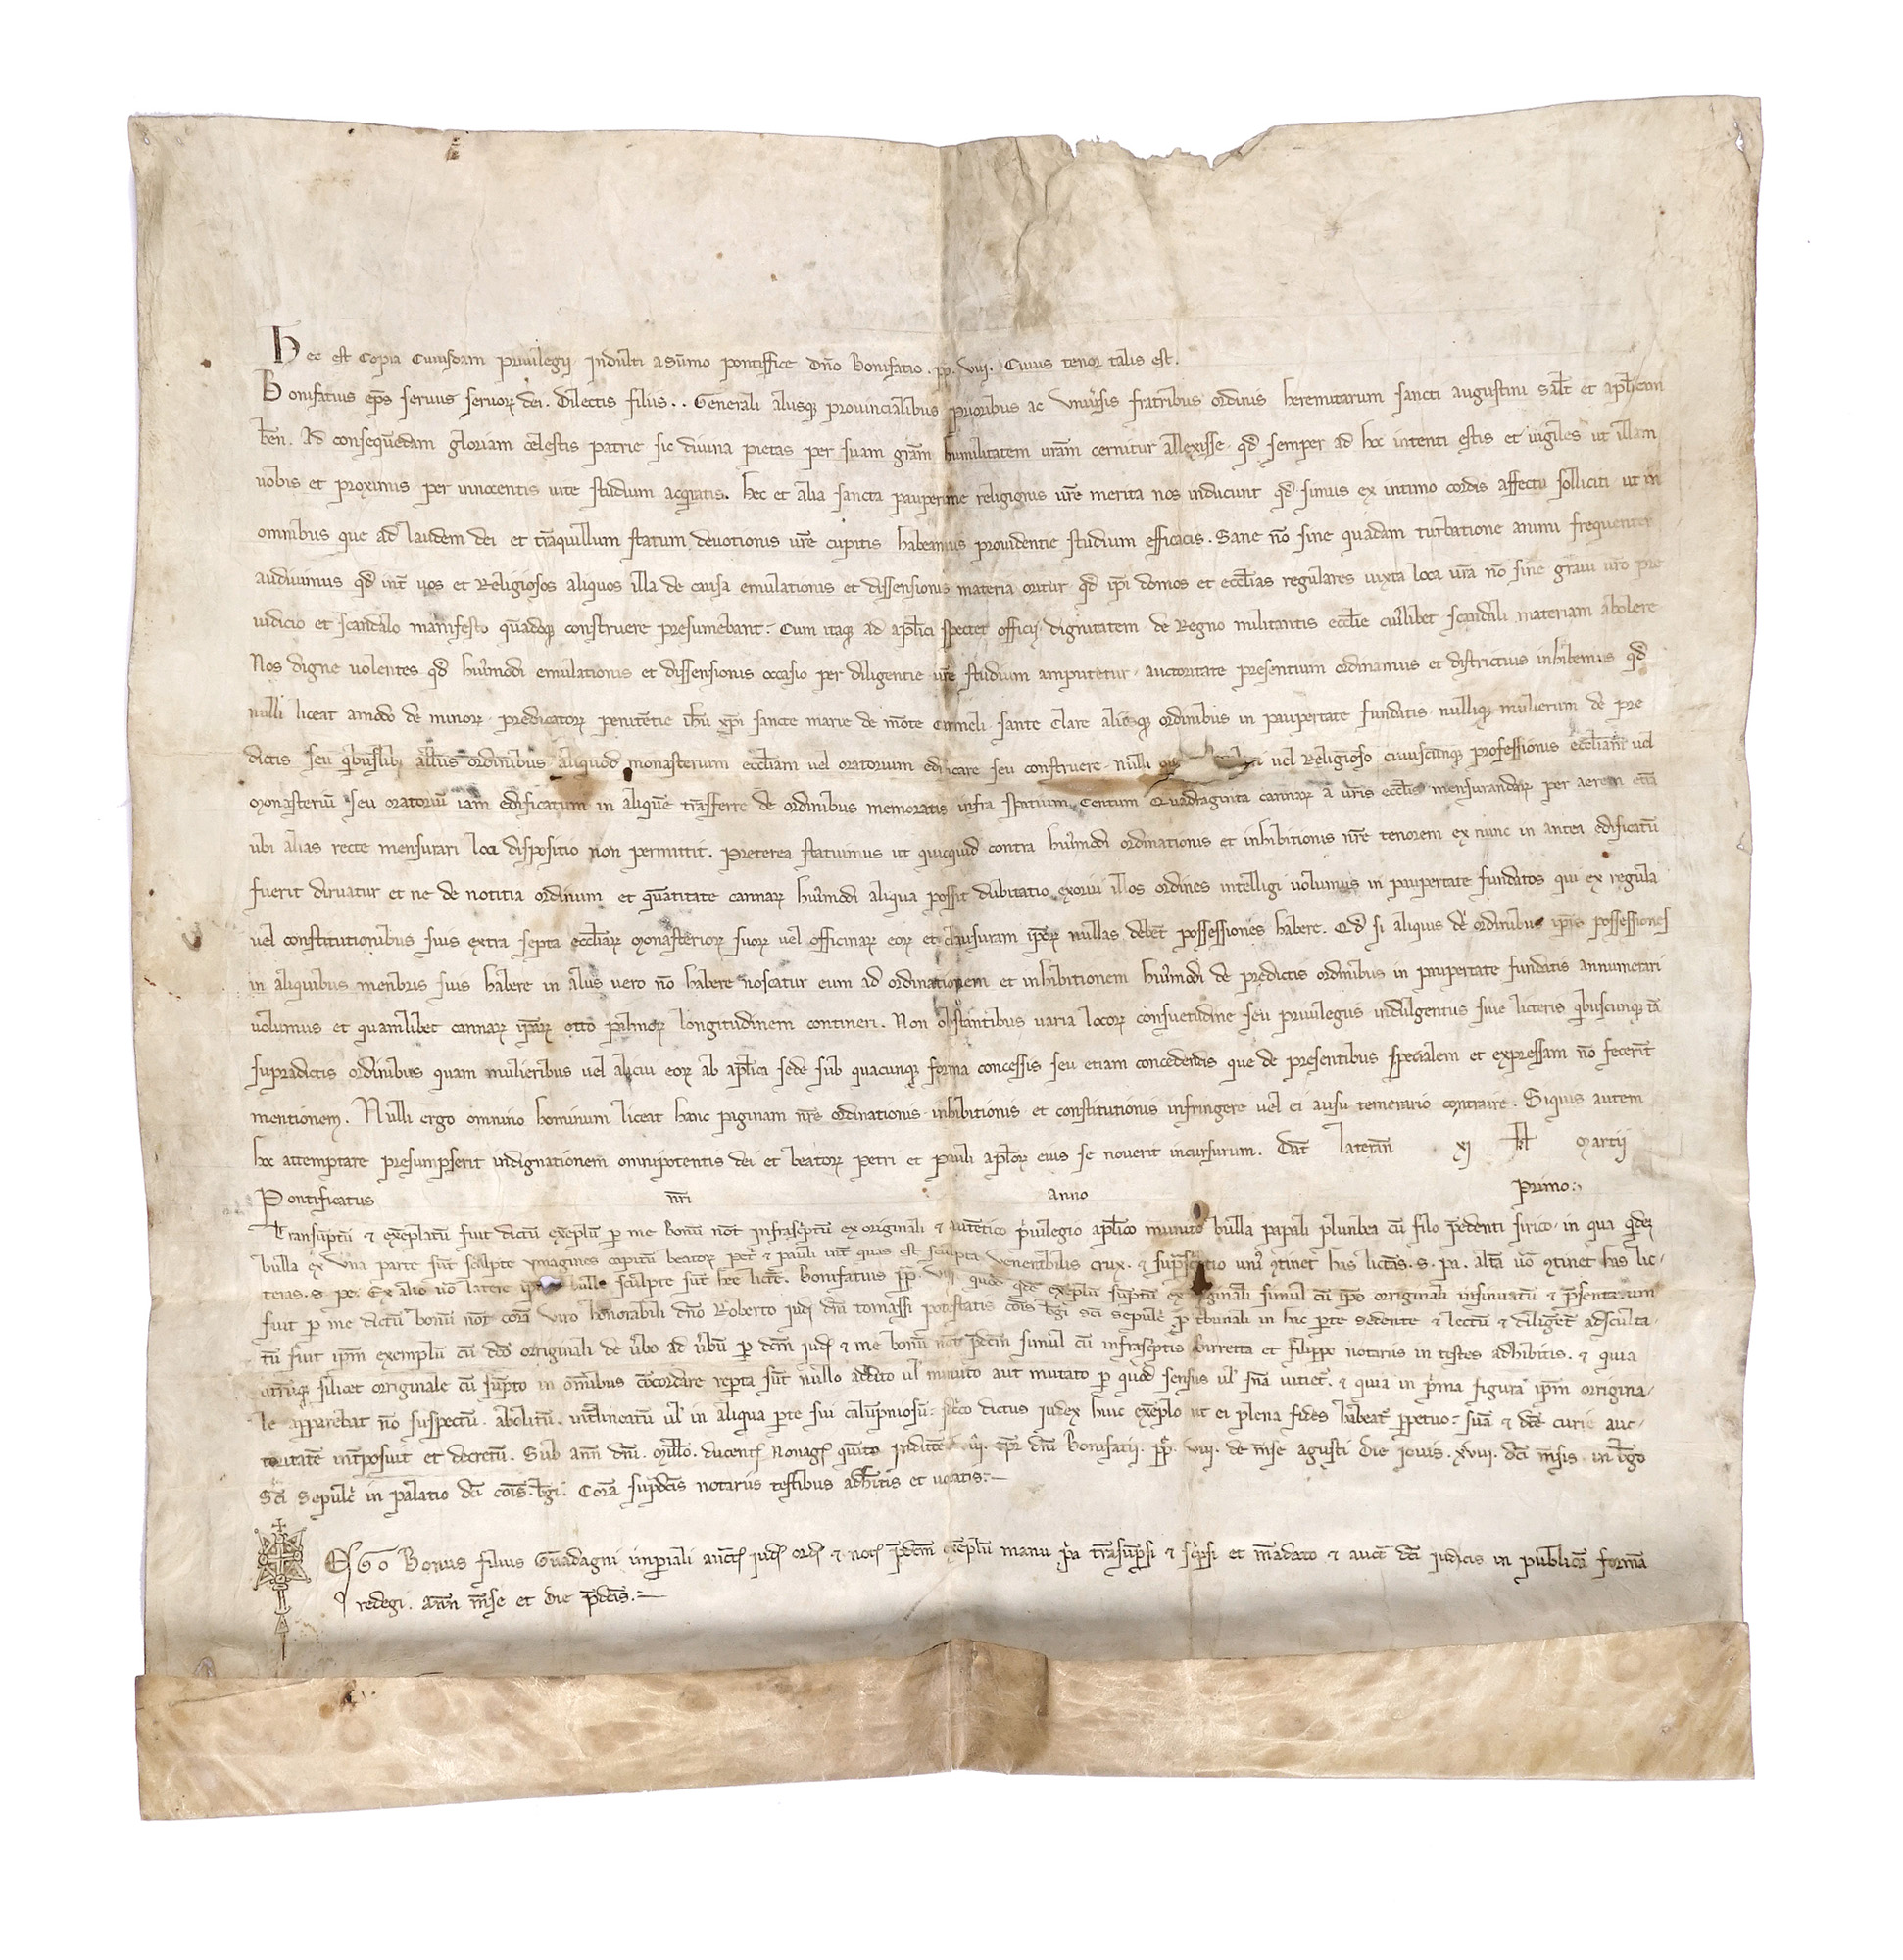 Hec est Copia Cuiusdam priuilegij indulti a sūmo pontiffice dn̄o Bonifatio . pp̄. viij. Cuius tenor talis est.
Bonifatius ep̄s seruus seruoꝝ dei . Dilectis filiis . . Generali aliisqꝫ prouincialibus prioribus ac vniuˀsis fratribus ordinis heremitarum sancti augustini sal̄t et apl̄icam
ben̄. Ad consequēdam gloriam celestis patrie sic diuina pietas per suam grām humilitatem ur̄am cernitur allexisse . qđ semper ad hoc intenti estis et uigiles ut illam
uobis et proximis per innocentis uite studium acq̄ratis. hec et alia sancta pauperime religionis ur̄e merita nos inducunt qđ simus ex intimo cordis affectu solliciti ut in
omnibus que ad laudem dei et trāquillum statum deuotionis ur̄e cupitis habeamus prouidentie studium efficacis . Sane nō sine quadam turbatione animi frequenter
audiuimus qđ int̄ uos et Religiosos aliquos illa de causa emulationis et dissensionis materia oritur qđ ip̄i domos et eccl̄ias regulares iuxta loca ur̄a nō sine graui ur̄o pre
iudicio et scandalo manifesto quādoqꝫ construere presumebant. Cum itaqꝫ ad apl̄ici spectet officij dignitatem de Regno militantis eccl̄ie cuiˀlibet scandali materiam abolere
Nos digne uolentes qđ huiˀmodi emulationis et dissensionis occasio per diligentie ur̄e studium amputetur . auctoritate presentium ordinamus et districtius inhibemus qđ
nulli liceat amodo de minoꝝ . predicatoꝝ penitētie ih̄u xp̄i sancte marie de mōte Carmeli . sante Clare aliisqꝫ ordinibus in paupertate fundatis . nulliqꝫ mulierum de pre
dictis seu q̄buslibꝫ aliis ordinibus aliquod monasterium eccl̄iam uel oratorium edificare seu construere . nulli uel Religioso cuiuscunqꝫ professionis eccl̄iam uel
monasteriū seu oratoriū iam edificatum in aliquē trasferre de ordinibus memoratis infra spatium Centum Quadraginta cannaꝝ a ur̄is eccl̄iis mensurandaꝝ per aerem etiā
ubi alias recte mensurari loci dispositio non permittit . Preterea statuimus ut quicquid contra huiˀmodi ordinationis et inhibitionis nr̄e tenorem ex nunc in antea edificatū
fuerit diruatur et ne de notitia ordinum et quātitate cannaꝝ huiˀmodi aliqua possit dubitatio exoriri illos ordines intelligi uolumus in paupertate fundatos qui ex regula
uel constitutionibus suis extra septa eccl̄iaꝝ monasterioꝝ suoꝝ uel officinaꝝ eoꝝ et clausuram ip̄oꝝ nullas debēt possessiones habere . Qđ si aliquis de ordinibus ip̄is possessiones
in aliquibus menbris suis habere in aliis uero nō habere noscatur eum ad ordinationem et inhibitionem huiˀmodi de predictis ordinibus in paupertate fundatis annumerari
uolumus et quamlibet cannaꝝ ip̄aꝝ otto palmoꝝ longitudinem contineri . Non obstantibus uaria locoꝝ consuetudine seu priuilegiis indulgentiis siue licteris q̄buscunqꝫ tā
supradictis ordinibus quam mulieribus uel alicui eoꝝ ab apl̄ica sede sub quacunqꝫ forma concessis seu etiam concedendis que de presentibus specialem et expressam nō fecerīt
mentionem . Nulli ergo omnino hominum liceat hanc paginam nr̄e ordinationis inhibitionis et constitutionis infringere uel ei ausu temerario contraire . Siquis autem
hoc attemptare presumpserit indignationem omnipotentis dei et beatoꝝ petri et pauli apl̄oꝝ eius se nouerit incursurum. Dat̄ lateran̄ xj kl̄ martij
Pontificatus nr̄i anno Primo .
Transūptū & exēplatū fuit dictū exēplū p̱ me bonū not̄ infrasc̄ptū ex originali & autētico p̄uilegio apl̄ico munito bulla papali plunbea cū filo p̄edenti sirico . in qua q̄deꝫ
bulla ex una parte sūt sculpte ymagines capitū beatoꝝ pet̄ & pauli int̄ quas est sculpta venerabilis crux . & supˀsc̄ptio uniˀ ꝯtinet has lict̄as . s . pa . alt̄a uo ꝯtinet has lic
teras . s . pe . Ex alio uō latere bulle sculpte sūt hee lict̄e . Bonifatius pp̄. viij quod q̄de exēplū sūptū ex originali simul cū ip̄o originali insinuatū & p̄sentatum
fuit p̱ me dictū bonū not̄ corā uiro honorabili dn̄o Roberto iud̄ dn̄i tomassi potestatis cōis b̄gi sc̄i sepulc̄ p̱ tribunali in hac p̱te sedente & lectū & diligēt̄ adsculta
tū fuit ip̄m exemplū cū dc̄o originali de uˀbo ad uˀbū p̱ dc̄m iud̄ & me bonū not̄ p̄dc̄m simul cū infrasc̄ptis birretta et filippo notariis in testes adhibitis . & quia
utrūqꝫ silicet originale cū sūpto in om̄ibus cōcordare rep̱ta sūt nullo addito ul̄ minuto aut mutato p̱ quod sensus ul̄ sn̄ia uitiet̄ . & quia in p̄ma figura ip̄m origina
le apparebat nō suspectū . abolitū . int̄lineatū ul̄ in aliqua p̱te sui calūpniosū : id̄co dictus iudex huic exēplo ut ei plena fides habeat̄ p̱petuo : suā & dc̄e curie auc
toritatē int̄posuit et decretū . Sub ann̄ dn̄i . mill̄o . ducent̄ Nonaḡ quīto indict̄e viij . tp̄r dn̄i Bonifatij . pp̄. viij . de mēse agusti die iouis . xviij . dc̄i mēsis . in b̄go
Sc̄i Sepulc̄ in palatio dc̄i cōis . b̄gi . Corā supˀdc̄is notariis testibus adhītis et uocatis . —
Ego Bonus filius Guadagni inp̱iali auct̄ iud̄ ord̄ & not̄ p̄dc̄m exēplū manu p̄a trāsūpsi & sc̄psi et mādato & auct̄ dc̄i iudicis in publicā formā
redegi . ann̄ mēse et die p̄dc̄is . —